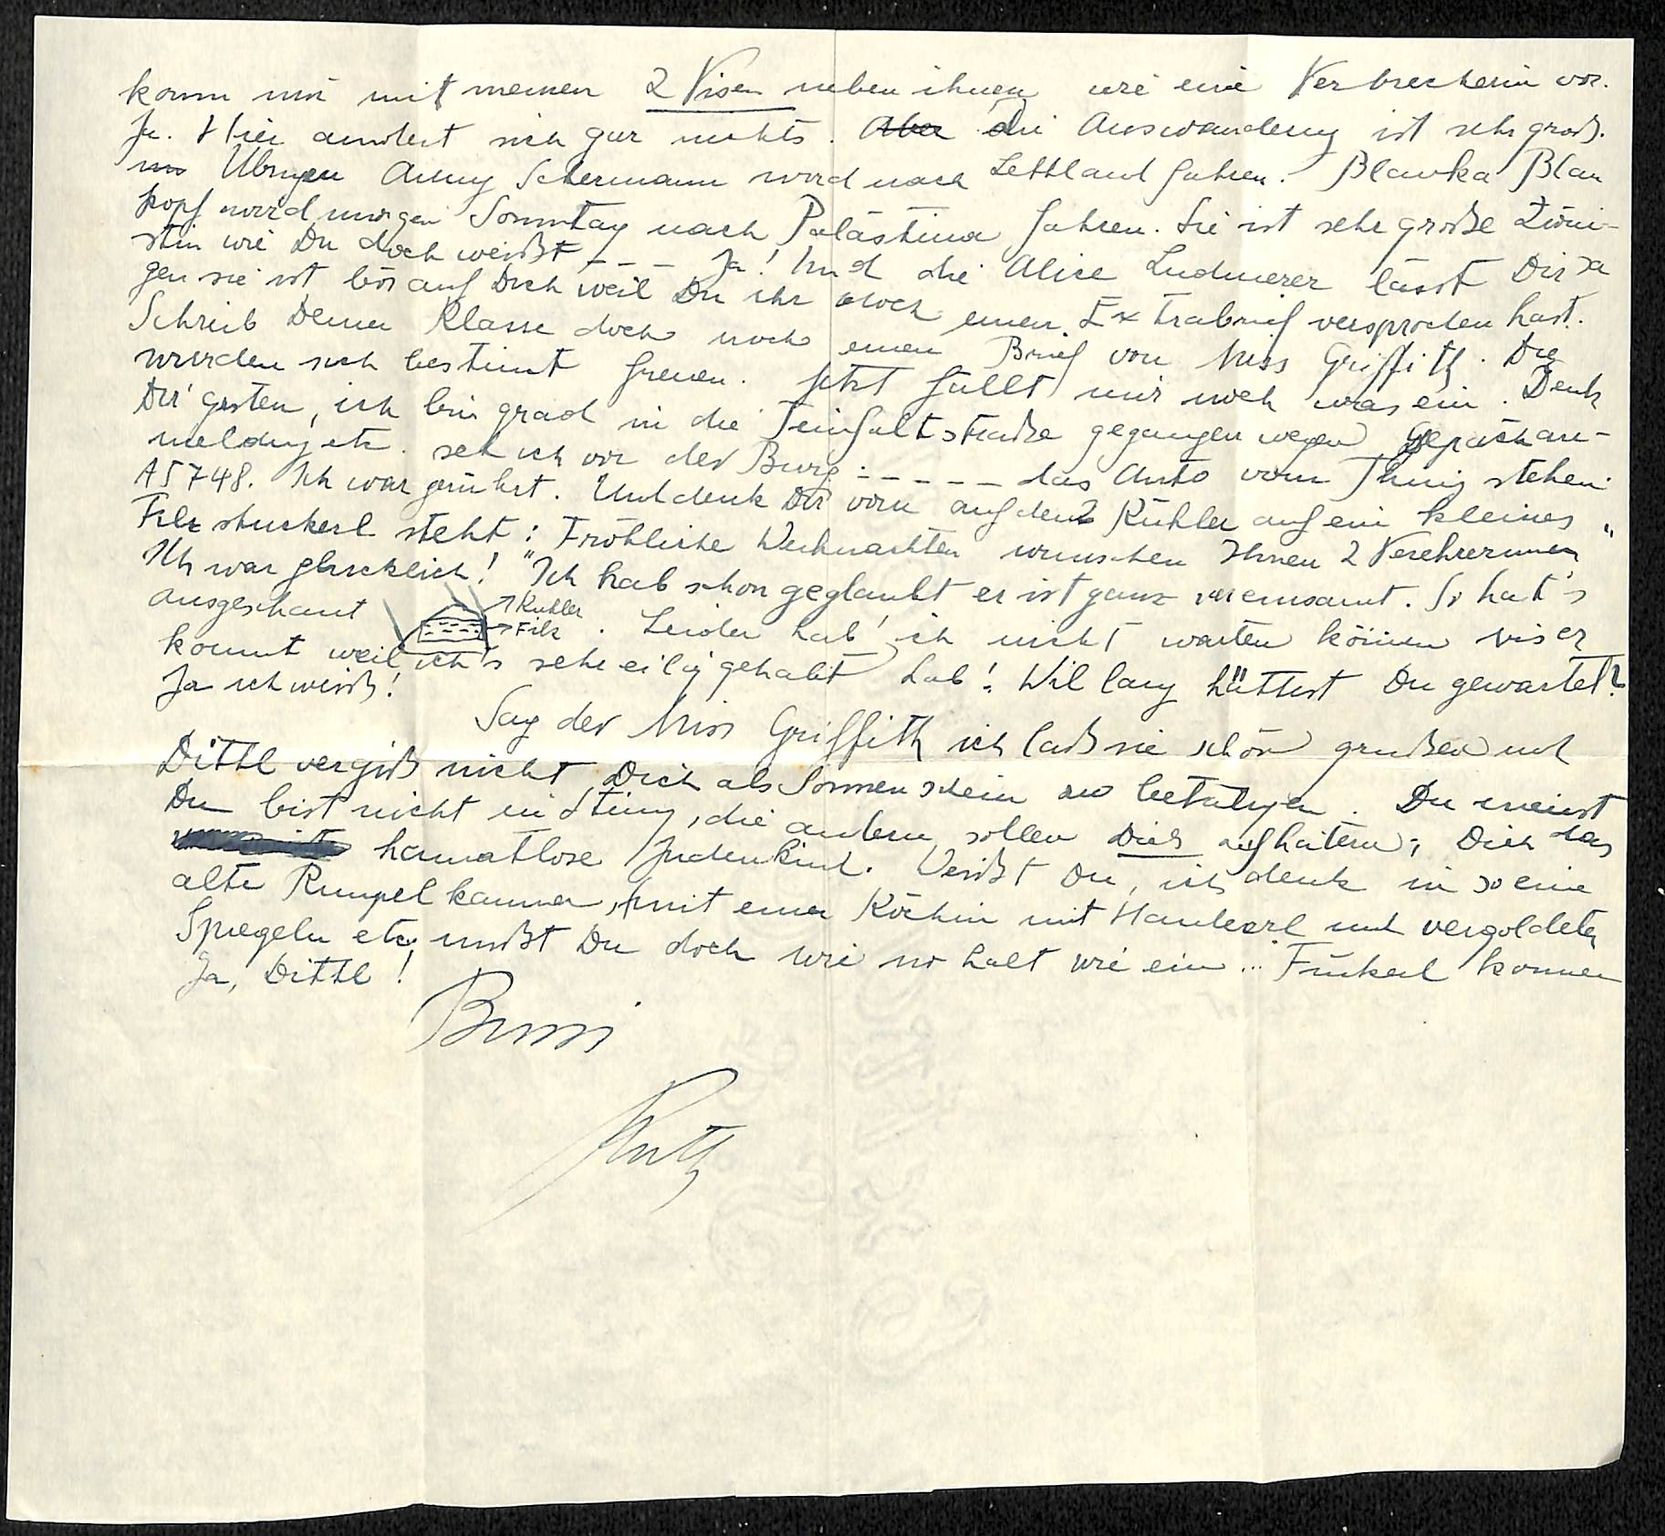 komm mir mit meinen 2 Visen neben ihnen wie eine Verbrecherin vor.
Ja. Hier ändert sich gar nichts. Aber die Auswanderung ist sehr groß.
Im Übrigen Anny Schermann wird nach Lettland fahren. Blanka Blau
kopf wird morgen Sonntag nach Palästina fahren. Sie ist sehr große Zioni-
stin wie Du doch weißt _ _ _ Ja! Und die Alice Ludmerer lässt Dir sa
gen sie ist bös auf Dich weil Du ihr doch einen Extrabrief versprochen hast.
Schreib Deiner Klasse doch noch einen Brief von Miss Griffith. Die
würden sich bestimt freuen. Jetzt fällt mir noch was ein. Denk
Dir gestern, ich bin grad in die Teinfaltstraße gegangen wegen Gepäckan-
meldung etc. seh ich vor der Burg _ _ _ _ _ das Auto vom Thimig stehen.
A5748. Ich war gerührt. Und denk Dir vorn auf dem Kühler auf ein kleines
Filzstückerl steht: "Fröhliche Weihnachten wünschen Ihnen 2 Verehrerinnen"
Ich war glücklich! Ich hab schon geglaubt er ist ganz vereinsamt. So hat's
ausgeschaut
→Kühler
→Filz
. Leider hab' ich nicht warten können bis er
kommt weil ich's sehr eilig gehabt hab! Wil lang hättest Du gewartet?
Ja ich weiß!
Sag der Miss Griffith ich laß sie schön grüßen und
Dittl vergiß nicht Dich als Sonnenschein zu betätigen. Du meinst
Du bist nicht in Stimg, die andern sollen Dich aufheitern, Dich das
heimatlose Judenkind. Weißt Du, ich denk in so eine
alte Rumpelkammer, mit einer Köchin mit Hauberl und vergoldeten
Spiegeln etc. mußt Du doch wie no halt wie ein... Funkerl kommen
Ja, Dittl!
Bussi
Ruth